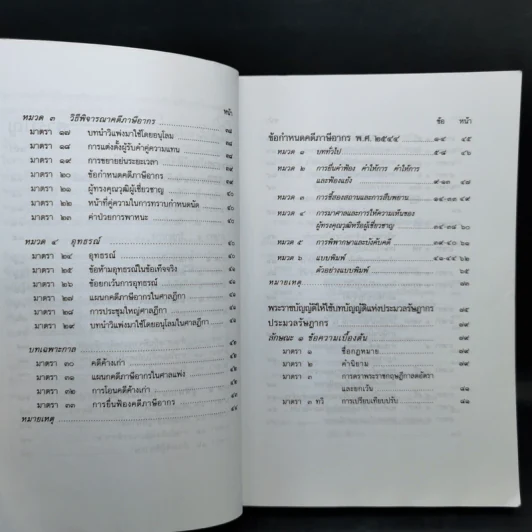 หน้า
หมวด ๓ วิธีพิจารณาคดีภาษีอากร
มาตรา ๑๗ บทนำวิแพ่งมาใช้โดยอนุโลม
มาตรา ๑๘ การแต่งตั้งผู้รับคำคู่ความแทน
มาตรา ๑๙ การขยายย่นระยะเวลา
มาตรา ๒๐ ข้อกำหนดคดีภาษีอากร
มาตรา ๒๑ ผู้ทรงคุณวุฒิผู้เชี่ยวชาญ
มาตรา ๒๒ หน้าที่คู่ความในการทราบกำหนดนัด
มาตรา ๒๓ ค่าป่วยการพาหนะ
หมวด ๔ อุทธรณ์
มาตรา ๒๔ อุทธรณ์
มาตรา ๒๕ ข้อห้ามอุทธรณ์ในข้อเท็จจริง
มาตรา ๒๖ ข้อยกเว้นการอุทธรณ์
มาตรา ๒๗ แผนกคดีภาษีอากรในศาลฎีกา
มาตรา ๒๘ การประชุมใหญ่ศาลฎีกา
มาตรา ๒๙ บทนำวิแพ่งมาใช้โดยอนุโลมในศาลฎีกา
บทเฉพาะกาล
มาตรา ๓๐ คดีค้างเก่า
มาตรา ๓๑ แผนกคดีภาษีอากรในศาลแพ่ง
มาตรา ๓๒ การโอนคดีค้างเก่า
มาตรา ๓๓ การยื่นฟ้องคดีภาษีอากร
หมายเหตุ
ข้อ หน้า
ข้อกำหนดคดีภาษีอากร พ.ศ. ๒๕๔๔ ๑-๔ ๔๕
หมวด ๑ บททั่วไป ๕-๘ ๔๖
หมวด ๒ การยื่นคำฟ้อง คำให้การ คำให้การ
และฟ้องแย้ง ๙-๑๓ ๔๗
หมวด ๓ การชี้สองสถานและการสืบพยาน
หมวด ๔ การมาศาลและการให้ความเห็นของ
ผู้ทรงคุณวุฒิหรือผู้เชี่ยวชาญ ๖๐
หมวด ๕ การพิพากษาและบังคับคดี ๓๙-๔๐ ๖๒
หมวด ๖ แบบพิมพ์ ๔๑-๔๔ ๖๒
ตัวอย่างแบบพิมพ์ ๖๕
หมายเหตุ
พระราชบัญญัติให้ใช้บทบัญญัติแห่งประมวลรัษฎากร
ประมวลรัษฎากร
ลักษณะ ๑ ข้อความเบื้องต้น
มาตรา ๑ ชื่อกฎหมาย
มาตรา ๒ คำนิยาม
มาตรา ๓ การตราพระราชกฤษฎีกาลดอัตรา
และยกเว้น ๘๑
มาตรา ๓ ทวิ การเปรียบเทียบปรับ ๘๑